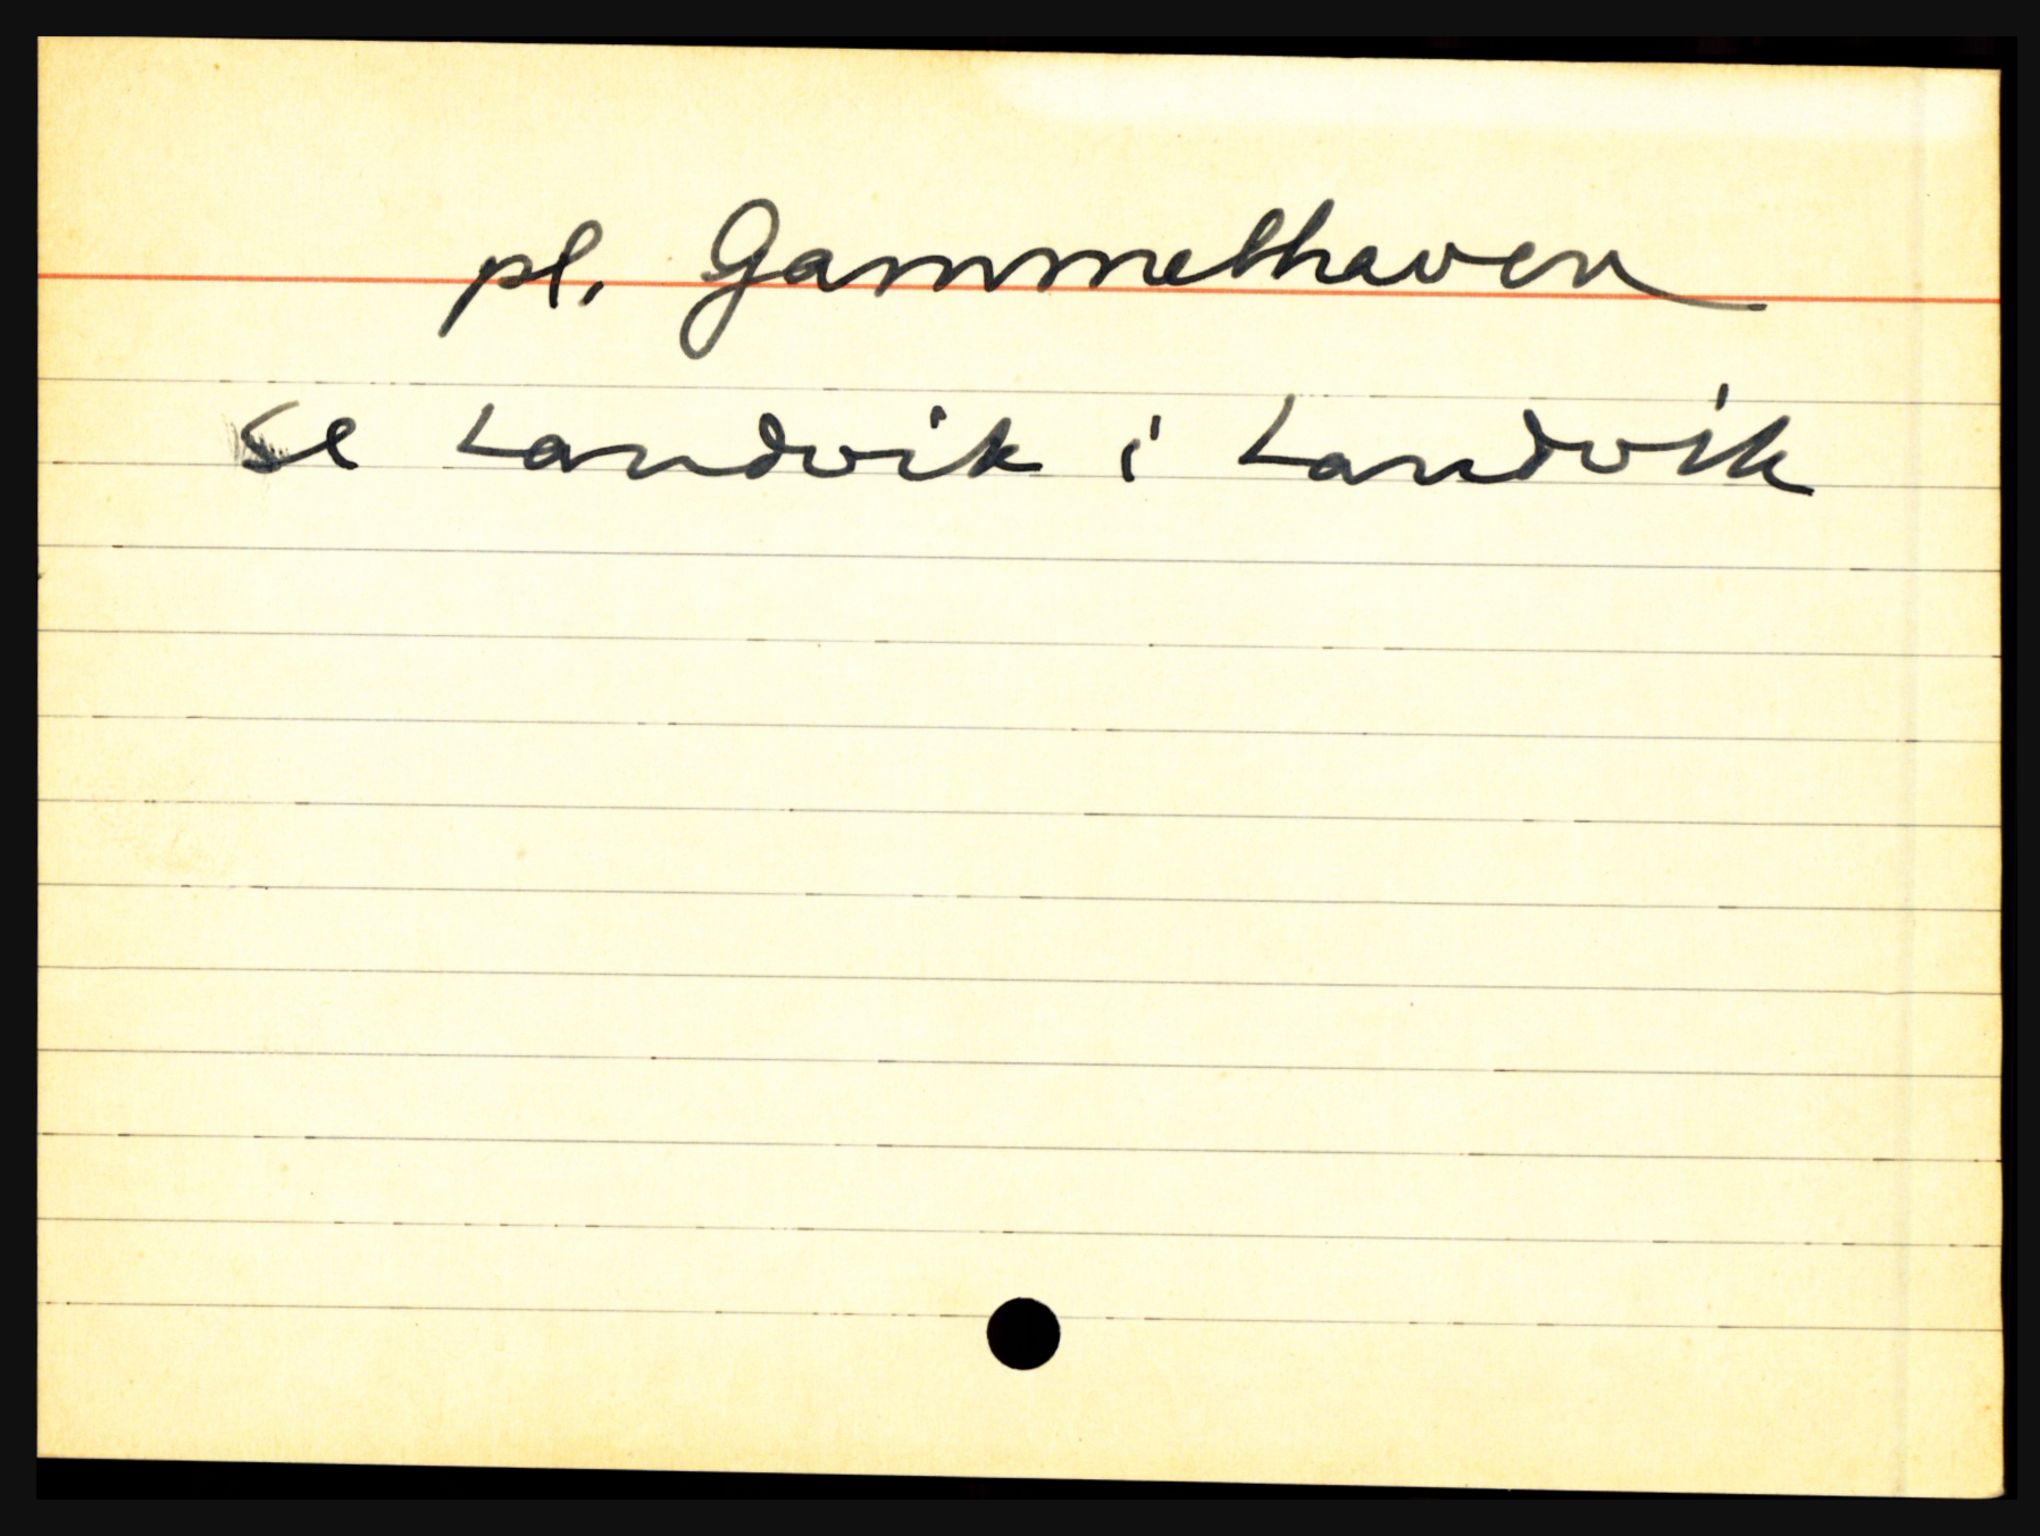 pl. Gammelhaven
se Landvik i Landvik